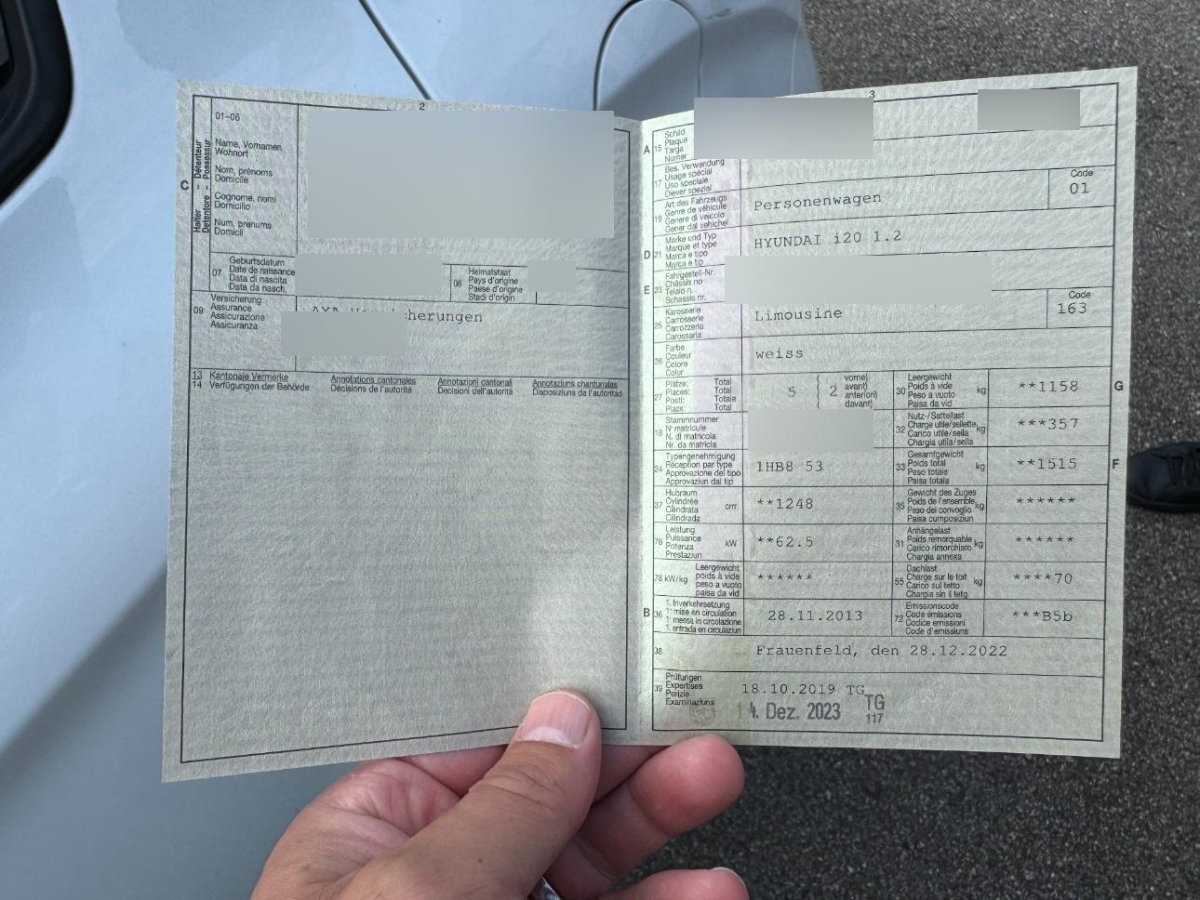 2
01-06
C
Halter - Détenteur
Detentore - Possessur
Name, Vornamen
Wohnort
Nom, prénoms
Domicile
Cognome, nomi
Domicilio
Num, prenums
Domicil
07
Geburtsdatum
Date de naissance
Data di nascita
Data da nasch.
08
Heimatstaat
Pays d'origine
Paese d'origine
Stadi d'origin
09
Versicherung
Assurance
Assicurazione
Assicuranza
cherungen
13
14
Kantonale Vermerke
Verfügungen der Behörde
Annotations cantonales
Décisions de l'autorité
Annotazioni cantonali
Decisioni dell'autorità
Annotaziuns chantunalas
Disposiziuns da l'autoritad
3
A 15
Schild
Plaque
Targa
Numer
17
Bes. Verwendung
Usage spécial
Uso speciale
Diever spezial
19
Art des Fahrzeugs
Genre de véhicule
Genere di veicolo
Gener dal vehichel
Personenwagen
Code
01
D 21
Marke und Typ
Marque et type
Marca e tipo
Marca e tip
HYUNDAI i20 1.2
E 23
Fahrgestell-Nr.
Châssis no
Telaio n.
Schassis nr.
25
Karosserie
Carrosserie
Carrozzeria
Carossaria
Limousine
Code
163
26
Farbe
Couleur
Colore
Colur
weiss
27
Plätze: Total
Places: Total
Posti: Totale
Plazs: Total
5 { 2
vorne)
avant)
anteriori)
davant)
30
Leergewicht
Poids à vide
Peso a vuoto
Paisa da vid
kg
**1158
G
18
Stammnummer
N° matricule
N. di matricola
Nr. da matricla
32
Nutz-/Sattellast
Charge utile/sellette
Carico utile/sella
Chargia utila/sella
kg
***357
24
Typengenehmigung
Réception par type
Approvazione del tipo
Approvaziun dal tip
1HB8 53
33
Gesamtgewicht
Poids total
Peso totale
Paisa totala
kg
**1515
F
37
Hubraum
Cylindrée
Cilindrata
Cilindrada
cm³
**1248
35
Gewicht des Zuges
Poids de l'ensemble
Peso del convoglio
Paisa cumposiziun
kg
******
76
Leistung
Puissance
Potenza
Prestaziun
kW
**62.5
31
Anhängelast
Poids remorquable
Carico rimorchiato
Chargia annexa
kg
******
78 kW/kg
Leergewicht
poids à vide
peso a vuoto
paisa da vid
******
55
Dachlast
Charge sur le toit
Carico sul tetto
Chargia sin il tetg
kg
****70
B 36
1. Inverkehrsetzung
1re mise en circulation
1. messa in circolazione
1. entrada en circulaziun
28.11.2013
72
Emissionscode
Code émissions
Codice emissioni
Code d'emissiuns
***B5b
38
Frauenfeld, den 28.12.2022
39
Prüfungen
Expertises
Perizie
Examinaziuns
18.10.2019 TG
Dez. 2023 TG
117